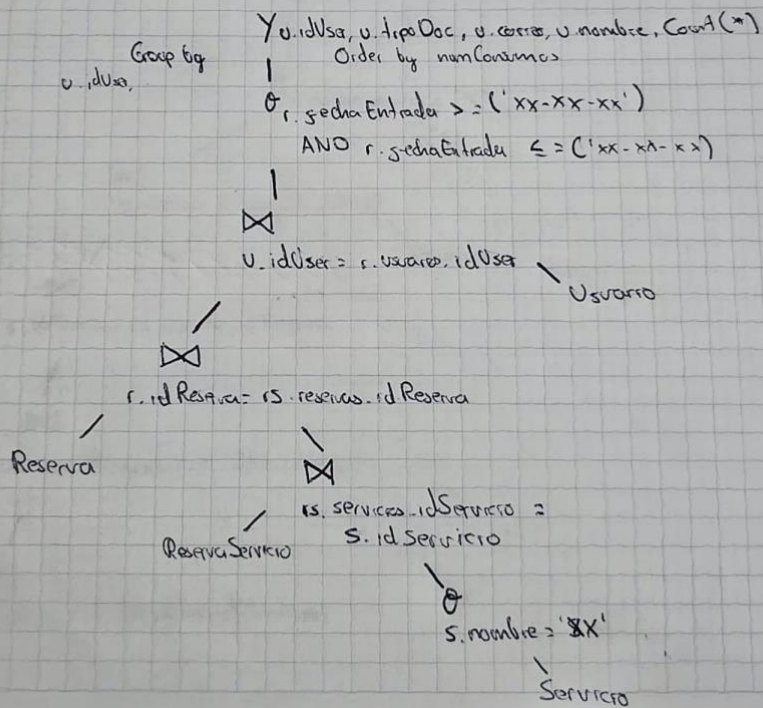 γ u.idUser, u.tipoDoc, u.correo, u.nombre, Count(*)
Group by
Order by numConsumos
u.idUser,
θ r.fechaEntrada >= ('xx-xx-xx')
AND r.fechaEntrada <= ('xx-xx-xx')
⋈
u.idUser = r.usuarios.idUser
Usuario
⋈
r.idReserva = rs.reservas.idReserva
Reserva
⋈
rs.servicios.idServicio =
s.idServicio
ReservaServicio
θ
s.nombre = 'XX'
Servicio